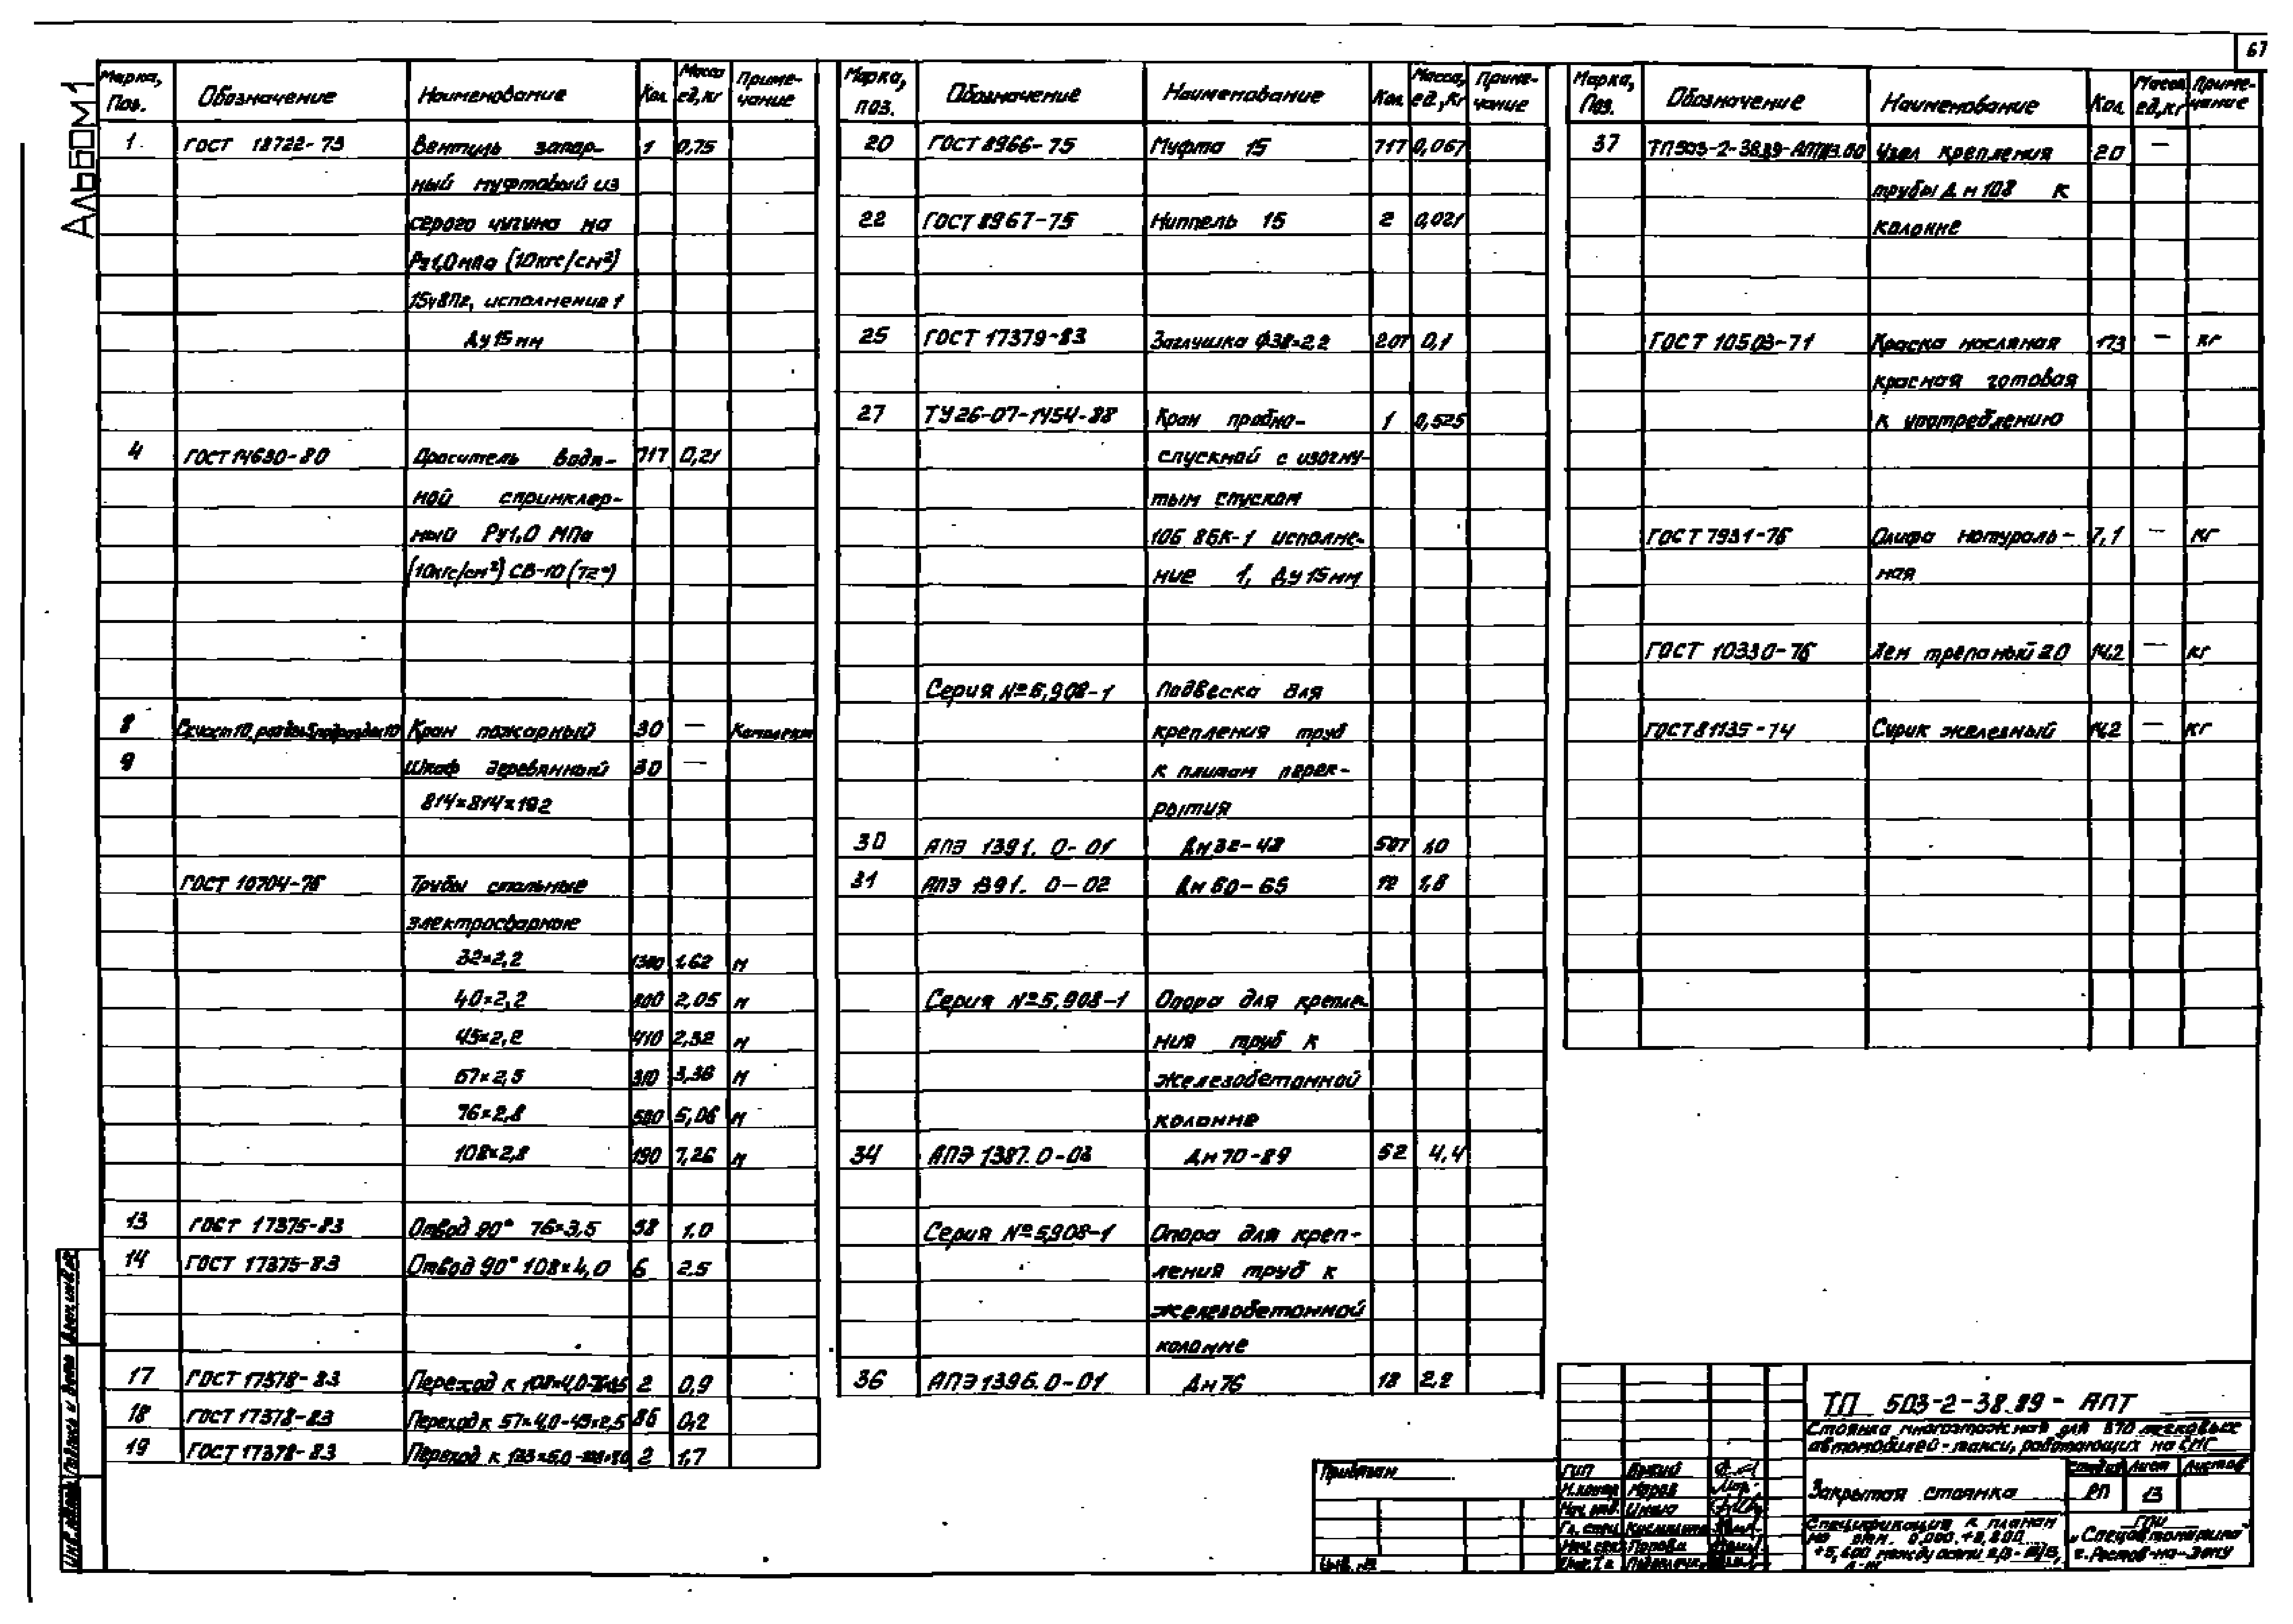 67
Альбом 1
Марка, Поз. Обозначение Наименование Кол. Масса ед,кг Приме-чание
1 ГОСТ 18722-73 Вентиль запор- 1 0,75
ный муфтовый из
серого чугуна на
Ру1,0МПа (10кгс/см²)
15ч8п2, исполнение 1
Ду15мм
4 ГОСТ 14630-80 Ороситель водя- 717 0,21
ной спринклер-
ный Ру1,0 МПа
(10кгс/см²) СВ-10 (72°)
8 Кран пожарный 30 — Комплект
9 Шкаф деревянный 30 —
814×814×192
ГОСТ 10704-76 Трубы стальные
электросварные
32×2,2 1380 1,62 м
40×2,2 800 2,05 м
45×2,2 410 2,32 м
57×2,5 310 3,36 м
76×2,8 580 5,06 м
108×2,8 190 7,26 м
13 ГОСТ 17375-83 Отвод 90° 76×3,5 38 1,0
14 ГОСТ 17375-83 Отвод 90° 108×4,0 6 2,5
17 ГОСТ 17378-83 Переход к 108×4,0-76×3,5 2 0,9
18 ГОСТ 17378-83 Переход к 57×4,0-45×2,5 86 0,2
19 ГОСТ 17378-83 Переход к 2 1,7
Марка, поз. Обозначение Наименование Кол. Масса, ед,кг Приме-чание
20 ГОСТ 8966-75 Муфта 15 717 0,067
22 ГОСТ 8967-75 Ниппель 15 2 0,021
25 ГОСТ 17379-83 Заглушка Ф38×2,2 207 0,1
27 ТУ 26-07-1454-88 Кран пробно- 1 0,525
спускной с изогну-
тым спуском
10Б 8БК-1 исполне-
ние 1, Ду15мм
Серия №5,908-1 Подвеска для
крепления труб
к плитам перек-
рытия
30 АПЭ 1391. 0-01 Дн32-48 507 1,0
31 АПЭ 1391. 0-02 Дн 60-65 12 1,8
Серия №5,908-1 Опора для крепле-
ния труб к
железобетонной
колонне
34 АПЭ 1387.0-03 Дн 70-89 52 4,4
Серия №5,908-1 Опора для креп-
ления труб к
железобетонной
колонне
36 АПЭ 1396.0-01 Дн76 18 2,2
Марка, Поз. Обозначение Наименование Кол. Масса ед,кг Приме-чание
37 Узел крепления 20 —
трубы Дн108 к
колонне
ГОСТ 10503-71 Краска масляная 173 — кг
красная готовая
к употреблению
ГОСТ 7931-76 Олифа натураль- 7,1 — кг
ная
ГОСТ 10330-76 Лен трепаный 20 14,2 — кг
ГОСТ 8135-74 Сурик железный 14,2 — кг
ТП 503-2-38.89 - АПТ
Стоянка многоэтажная для 370 легковых
автомобилей-такси, работающих на СПГ
Закрытая стоянка
Стадия Лист Листов
РП 13
Спецификация к планам
на отм. 0,000, +2,800,
ГПИ
"Спецавтоматика"
г. Ростов-на-Дону
Привязан
Инв. №
ГИП
Н.контр. Моров
Нач. отд.
Гл. спец.
Нач. сек. Попова
Подпись и дата